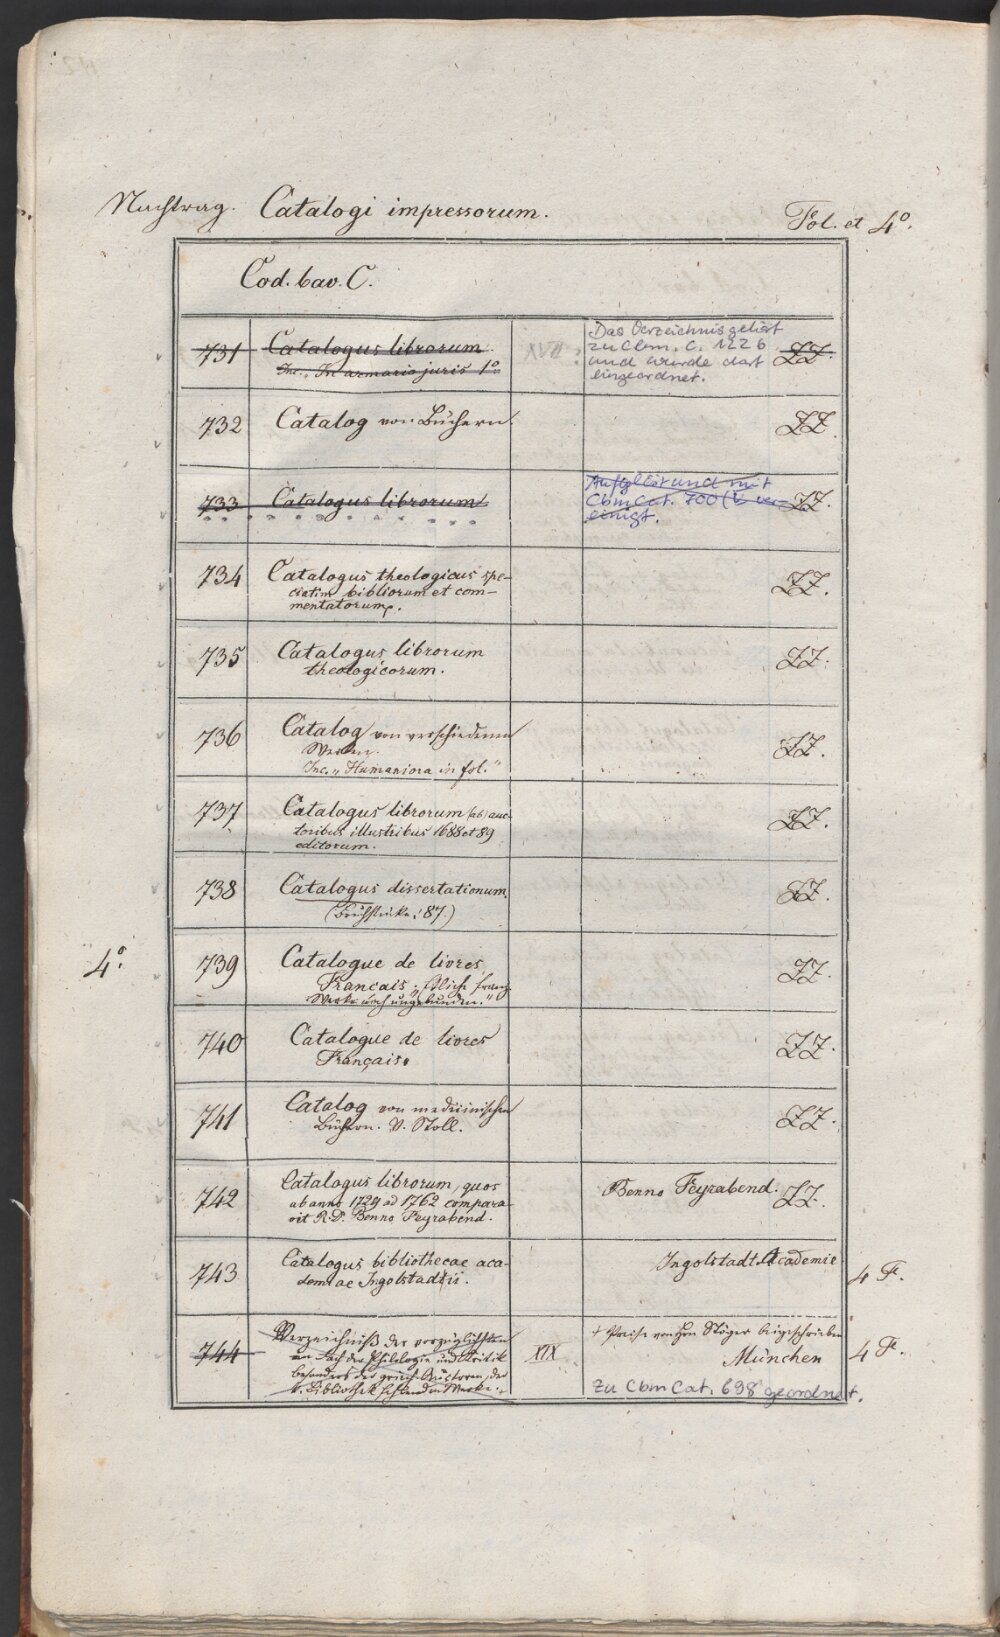 Nachtrag. Catalogi impressorum. Fol. et 4°.
Cod. bav. C.
731 Catalogus librorum. XVII ZZ.
Inc. „In armario juris 1°
Das Verzeichnis gehört
zu Cbm. C. 1226
und wurde dort
eingeordnet.
732 Catalog von Büchern. ZZ.
733 Catalogus librorum ZZ.
Aufgelöst und mit
Cbm Cat. 700 (b ver-
einigt.
734 Catalogus theologicus spe- ZZ.
ciatim bibliorum et com-
mentatorum.
735 Catalogus librorum ZZ.
theologicorum.
736 Catalog von verschiedenen ZZ.
Werken.
Inc. „Humaniora in fol."
737 Catalogus librorum (ab) auc- ZZ.
toribus illustribus 1688 et 89
editorum.
738 Catalogus dissertationum. ZZ.
(Bruchstücke: 87.)
4°. 739 Catalogue de livres ZZ.
Francais; franz.
Werke noch ungebunden."
740 Catalogue de livres ZZ.
Français.
741 Catalog von medicinischen ZZ.
Büchern. V. Stoll.
742 Catalogus librorum, quos Benno Feyrabend. ZZ.
ab anno 1729 ad 1762 compara-
vit R. D. Benno Feyrabend.
743 Catalogus bibliothecae aca- Ingolstadt Academie 4 F.
demiae Ingolstadii.
744 Verzeichniß der vorzüglichsten XIX + Preise von Hrn Stöger beigeschrieben
Fach der Philologie und Kritik München 4 F.
besonders der griech. Auctoren, der
k. Bibliothek fehlenden Werke.
zu Cbm Cat. 698 geordnet.